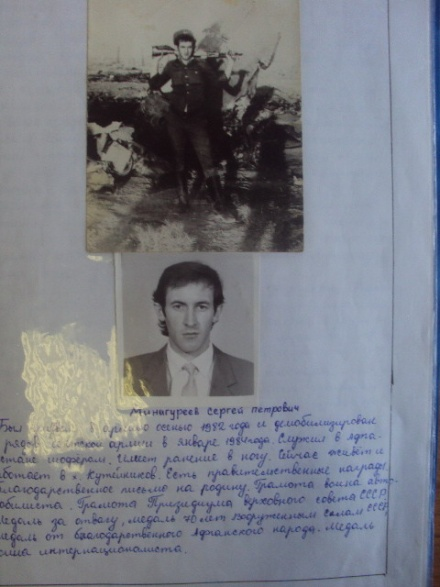 Минигуреев Сергей Петрович
Был в армию осенью 1982 года и демобилизирован
рядов армии в январе 1984 года. Служил в Афга-
стане шофером. Имеет ранение в ногу. Сейчас живёт и
аботает в х. Кутейников. Есть правительственные награды
лагодарственное письмо на родину. Грамота воина авто
обилиста. Грамота Призидиума Верховного совета СССР.
едаль за отвагу, медаль 70 лет Вооруженным силам СССР
едаль от благодарственного Афганского народа. Медаль
оина интернационалиста.